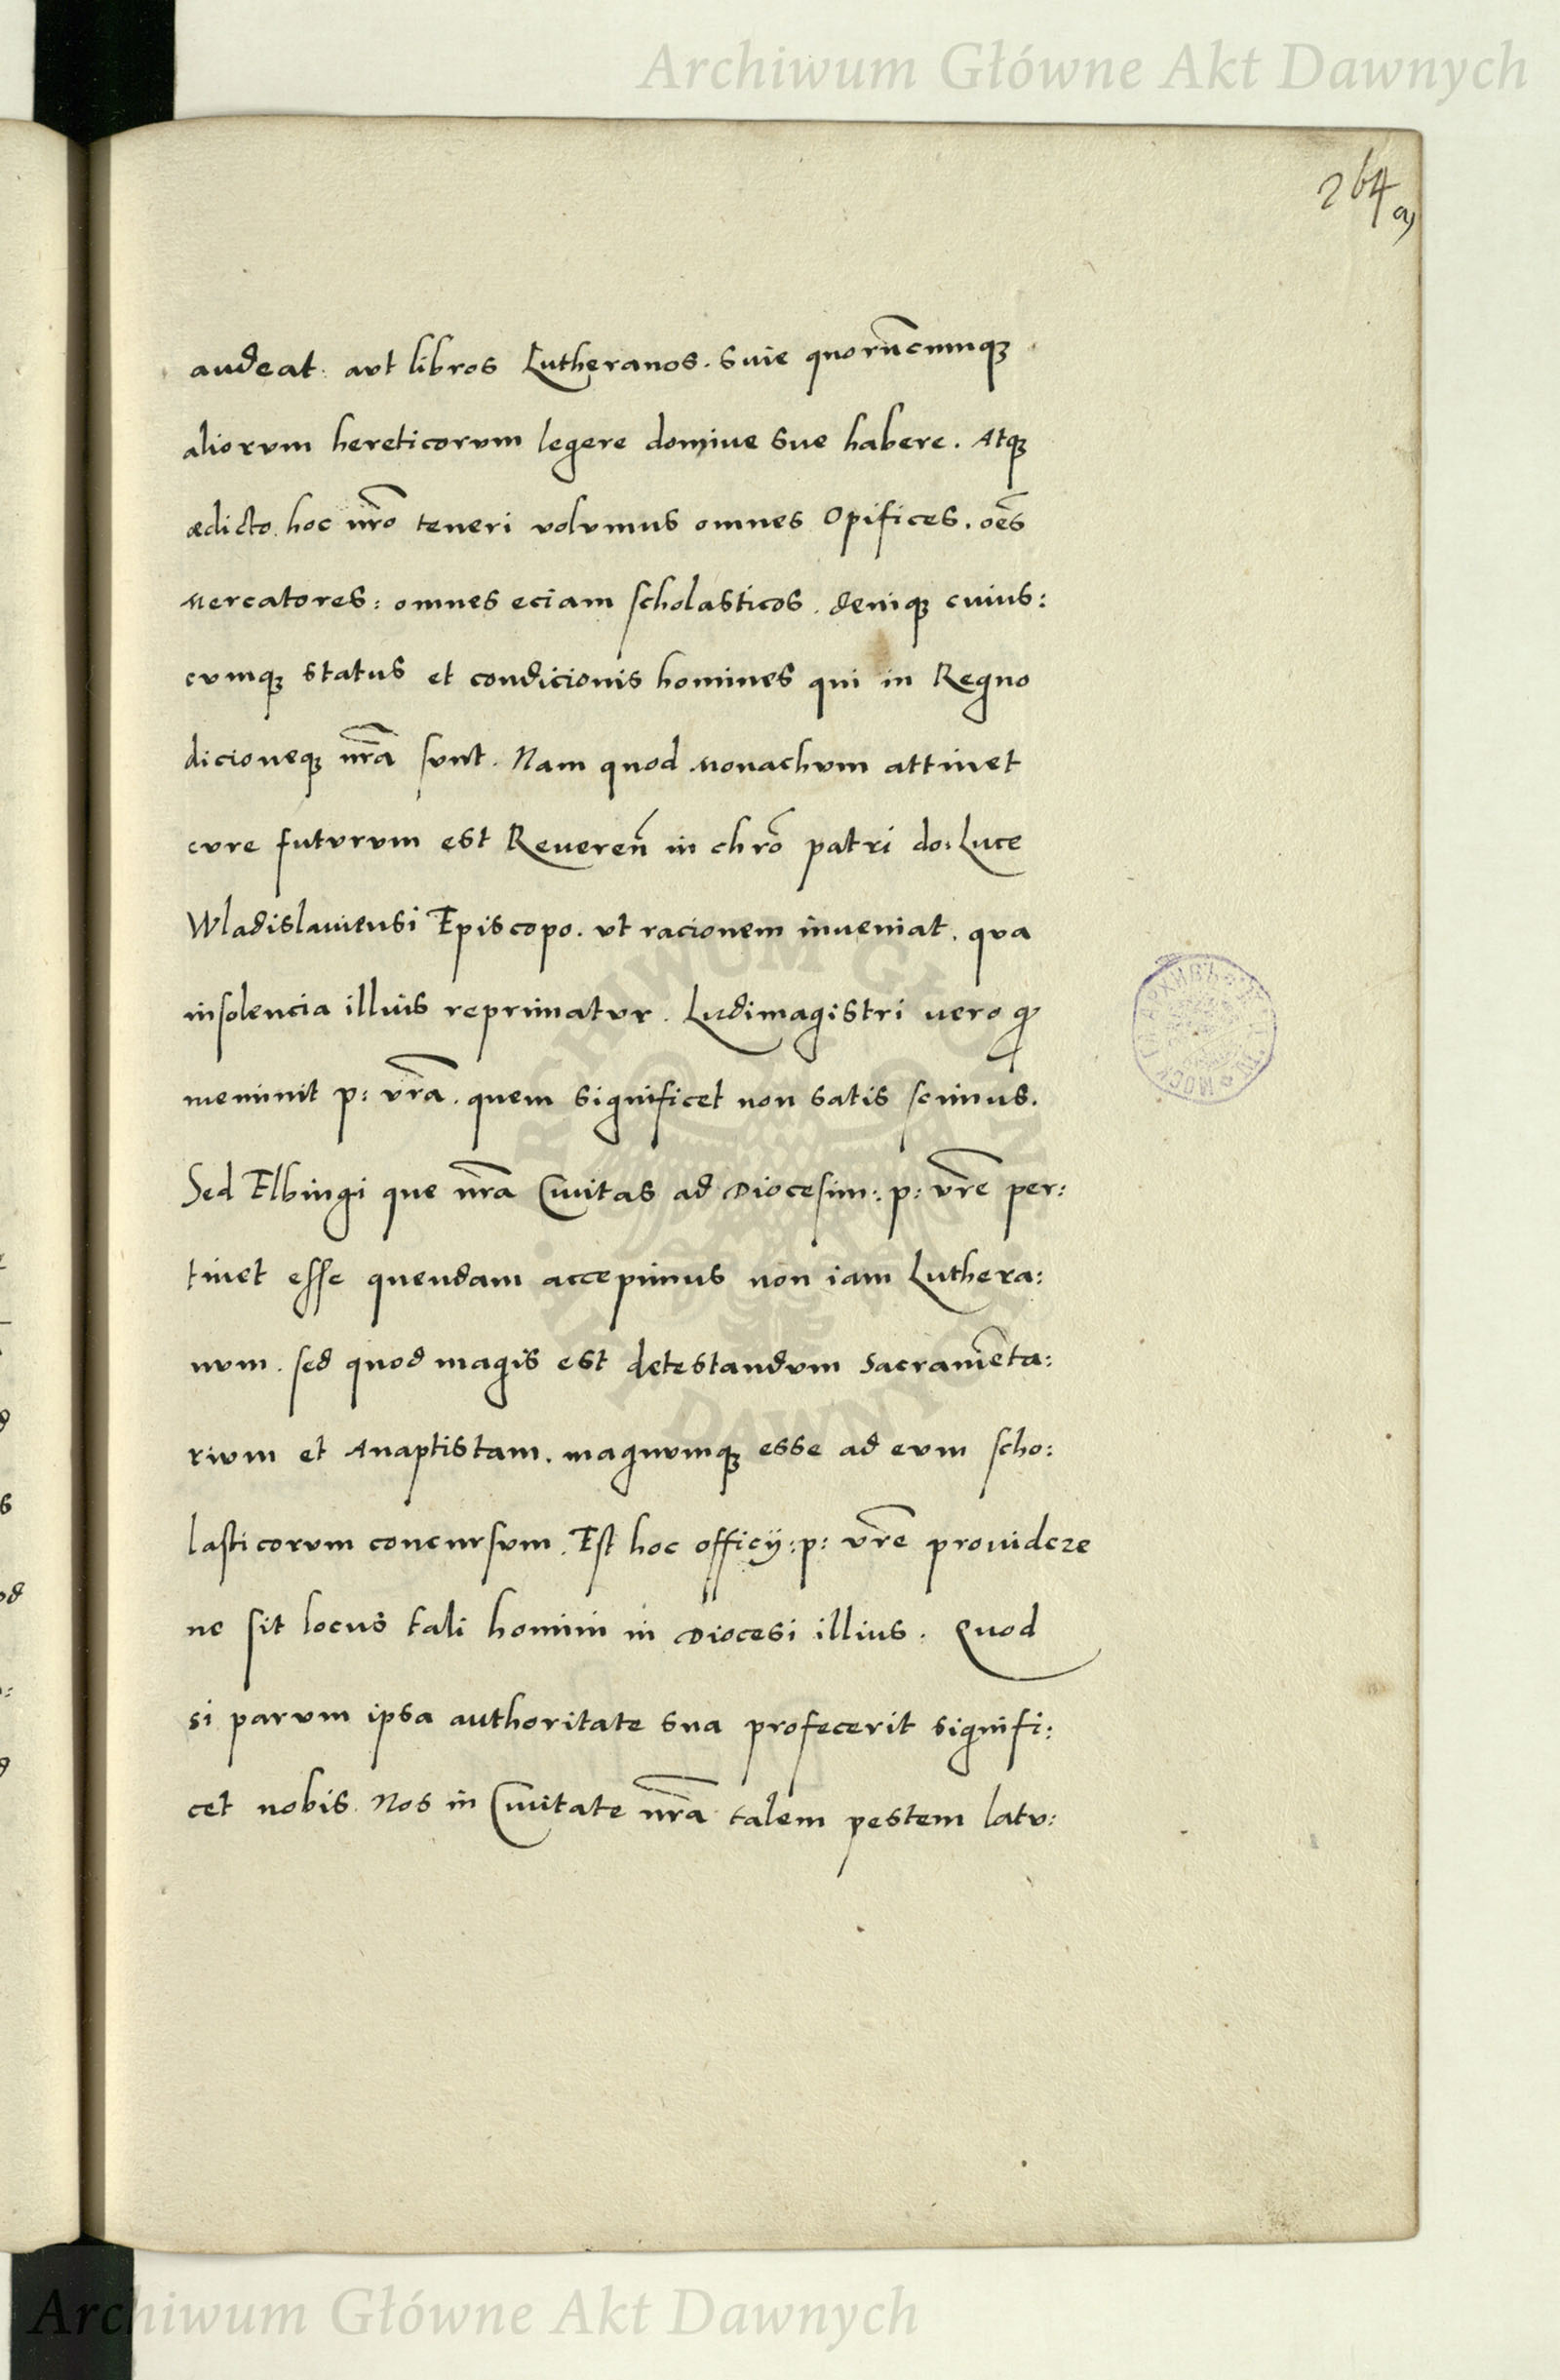 Archiwum Główne Akt Dawnych
264
audeat. aut libros Lutheranos. sive quorũcumqꝫ
aliorum hereticorum legere domive sue habere. Atqꝫ
ædicto hoc nr̃o teneri volumus omnes Opifices. oẽs
Mercatores: omnes eciam scholasticos. deniqꝫ cuius:
cumqꝫ status et condicionis homines qui in Regno
dicioneqꝫ nr̃a sunt. Nam quod Monachum attinet
cure futurum est Reveren̄ in chr̃o patri do: Luce
Wladislaviensi Episcopo. ut racionem inveniat. qua
insolencia illius reprimatur. Ludimagistri vero
meminit p: vr̃a. quem significet non satis scimus.
Sed Elbingi que nr̃a Civitas ad Diocesim: p: vr̃e per:
tinet esse quendam accepimus non iam Luthera:
num. sed quod magis est detestandum Sacramẽta:
rium et Anaptistam. magnumqꝫ esse ad eum scho:
lasticorum concursum. Est hoc officij: p: vr̃e providere
ne sit locus tali homini in Diocesi illius. Quod
si parum ipsa authoritate sua profecerit signifi:
cet nobis. Nos in Civitate nr̃a talem pestem latu:
ARCHIWUM GŁÓWNE AKT DAWNYCH
Archiwum Główne Akt Dawnych